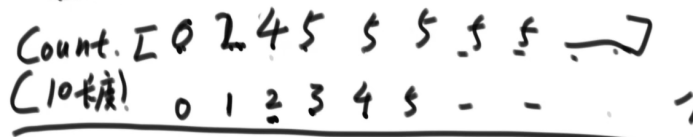 Count. [ 0 2 4 5 5 5 5 5 — ]
(10长度) 0 1 2 3 4 5 - -